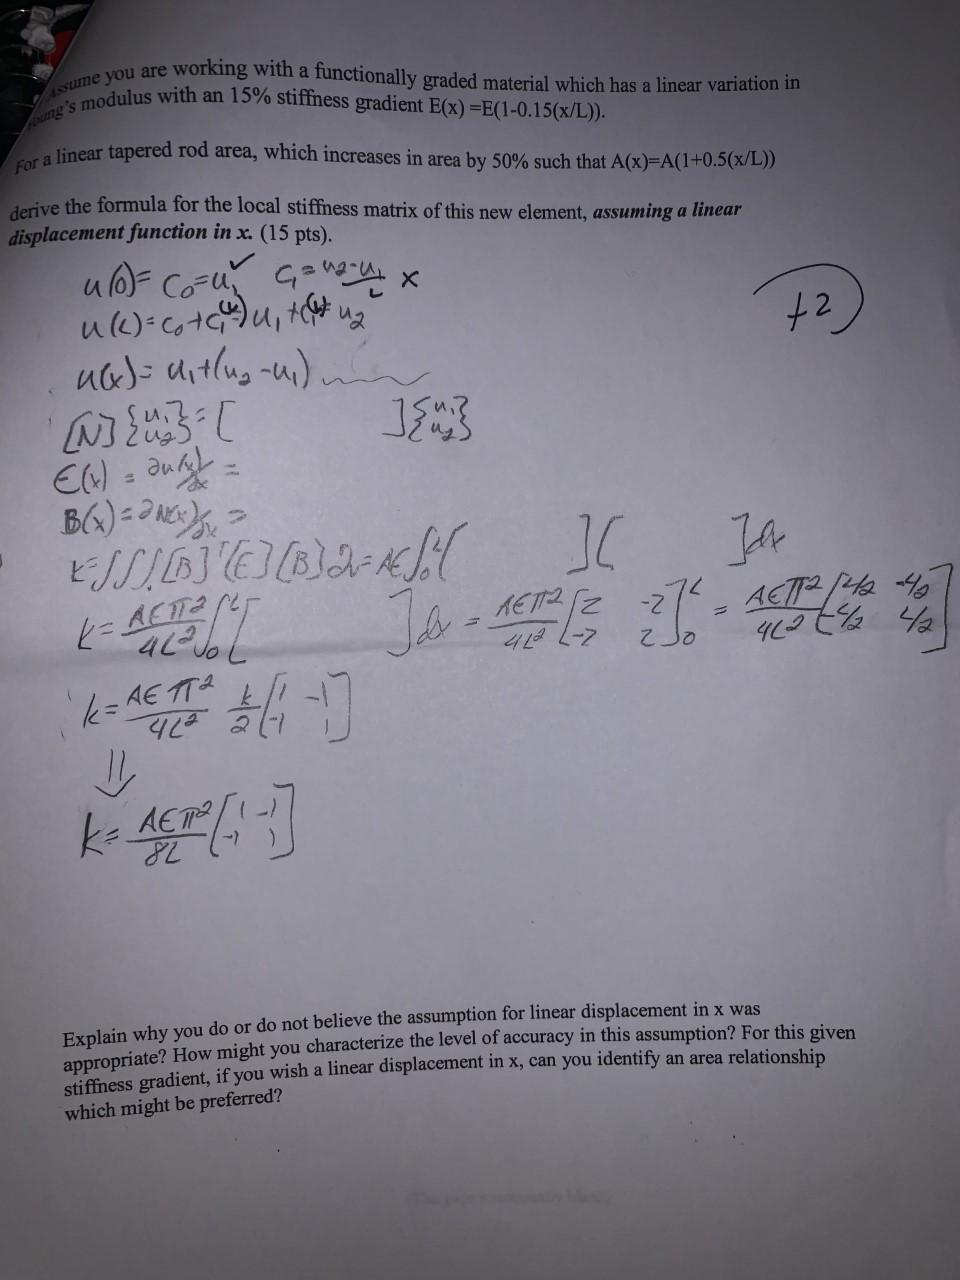 Assume you are working with a functionally graded material which has a linear variation in
Young's modulus with an 15% stiffness gradient E(x) =E(1-0.15(x/L)).
For a linear tapered rod area, which increases in area by 50% such that A(x)=A(1+0.5(x/L))
derive the formula for the local stiffness matrix of this new element, assuming a linear
displacement function in x. (15 pts).
u(0)= C₀=u₁ ✓ C₁= u₂-u₁/L x
+2
u(x)= u₁+(u₂-u₁)
[N]{u₁ u₂}=[ ]{u₁ u₂}
E(x) = ∂u(x)/∂x =
B(x)=∂N(x)/∂x =
k=∫∫∫[B]ᵀ[E][B]dv=AE∫₀ᴸ[ ][ ]dx
k= AEπ²/4L² ∫₀ᴸ[ ]dx = AEπ²/4L² [2 -2 -2 2]₀ᴸ = AEπ²/4L² [L/2 -L/2 -L/2 L/2]
k= AEπ²/4L² L/2 [1 -1 -1 1]
⇓
k= AEπ²/8L [1 -1 -1 1]
Explain why you do or do not believe the assumption for linear displacement in x was
appropriate? How might you characterize the level of accuracy in this assumption? For this given
stiffness gradient, if you wish a linear displacement in x, can you identify an area relationship
which might be preferred?